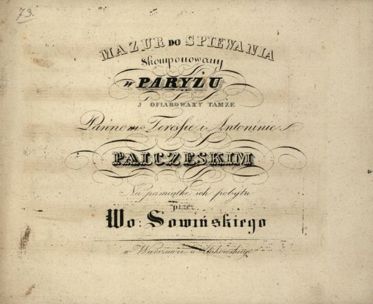 73.
MAZUR DO SPIEWANIA
Skomponowany
w PARYŻU
I OFIAROWANY TAMZE
Pannom Teressie i Antoninie
PALCZESKIM
Na pamiątkę ich pobytu
przez
Wo: Sowińskiego
w Warszawie u